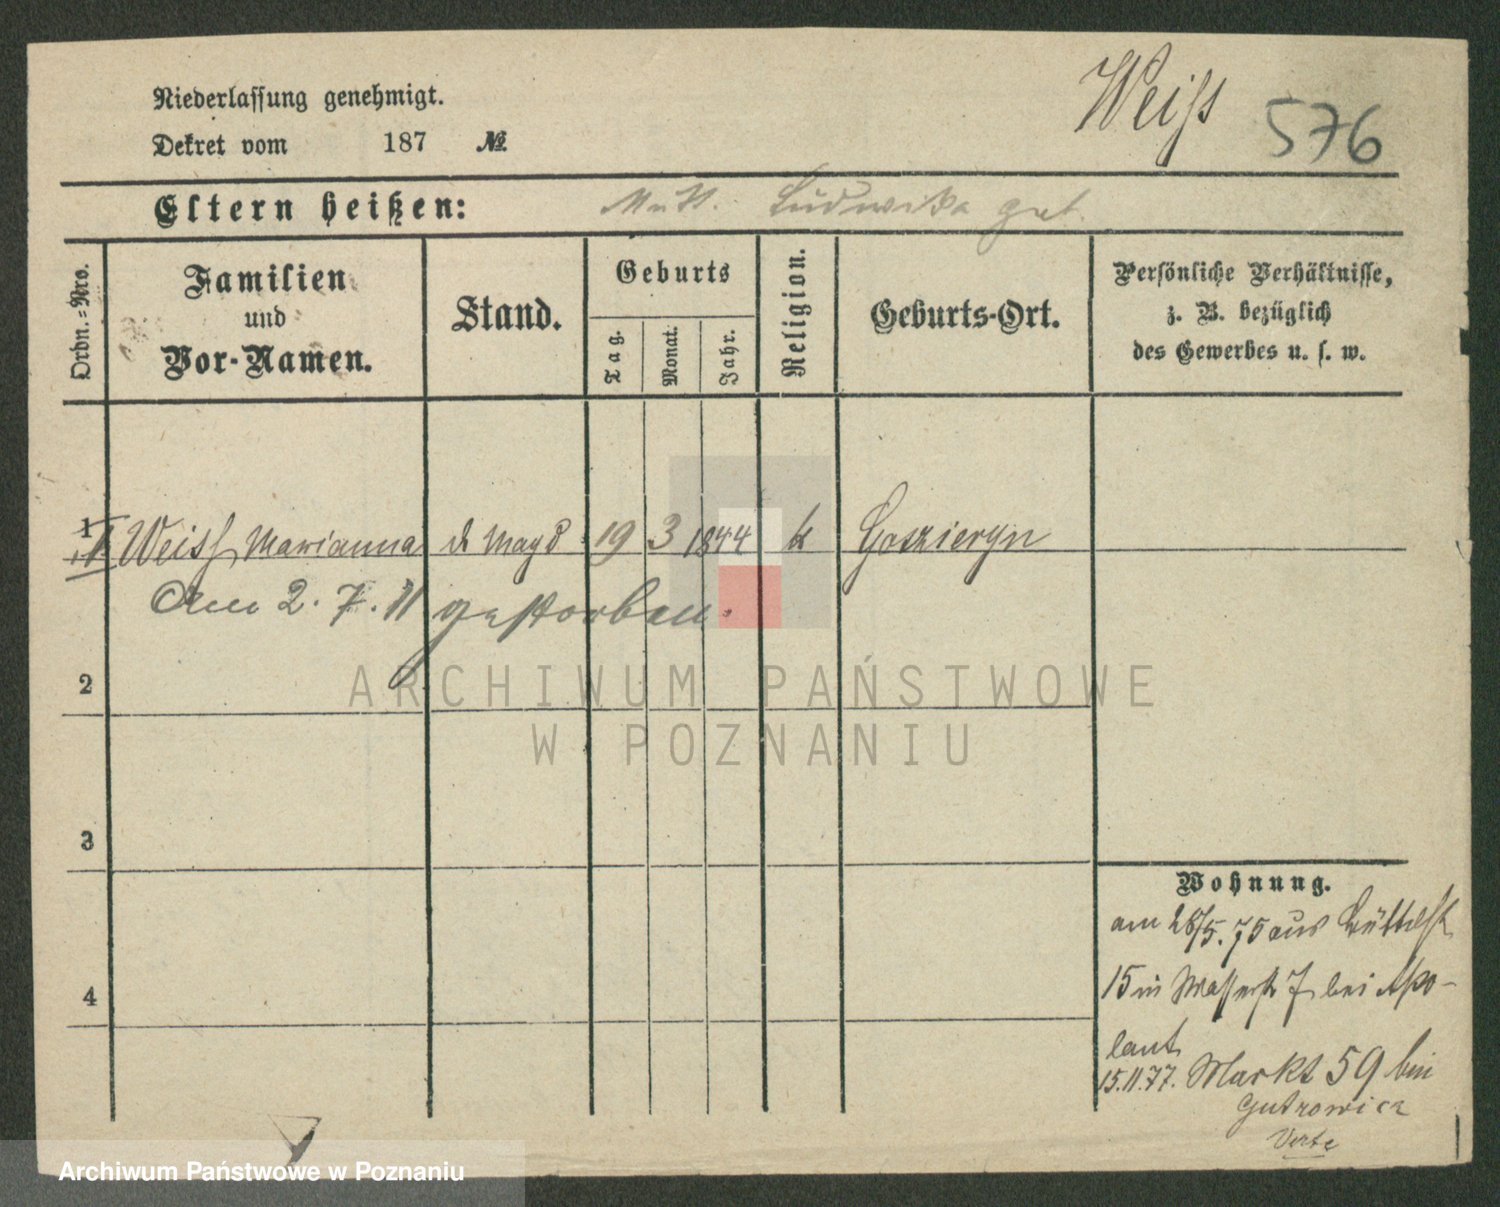 Weiss 576
Niederlassung genehmigt.
Dekret vom 187 №
Eltern heißen: Mutt. Ludwika geb.
Ordn.-Nro.
Familien und Vor-Namen.
Stand.
Geburts
Tag.
Monat.
Jahr.
Religion.
Geburts-Ort.
Persönliche Verhältnisse,
z. B. bezüglich
des Gewerbes u. s. w.
1 Weiss Marianna d. Magd 19 3 1844 k
Am 2. 7. 11 gestorben.
2
3
4
Wohnung.
am 28/5. 75 aus Büttelst
15 in Wasserstr 7 bei Apo-
lant
15.11.77. Markt 59 bei
Gutrowicz
Verte
ARCHIWUM PAŃSTWOWE
W POZNANIU
Archiwum Państwowe w Poznaniu